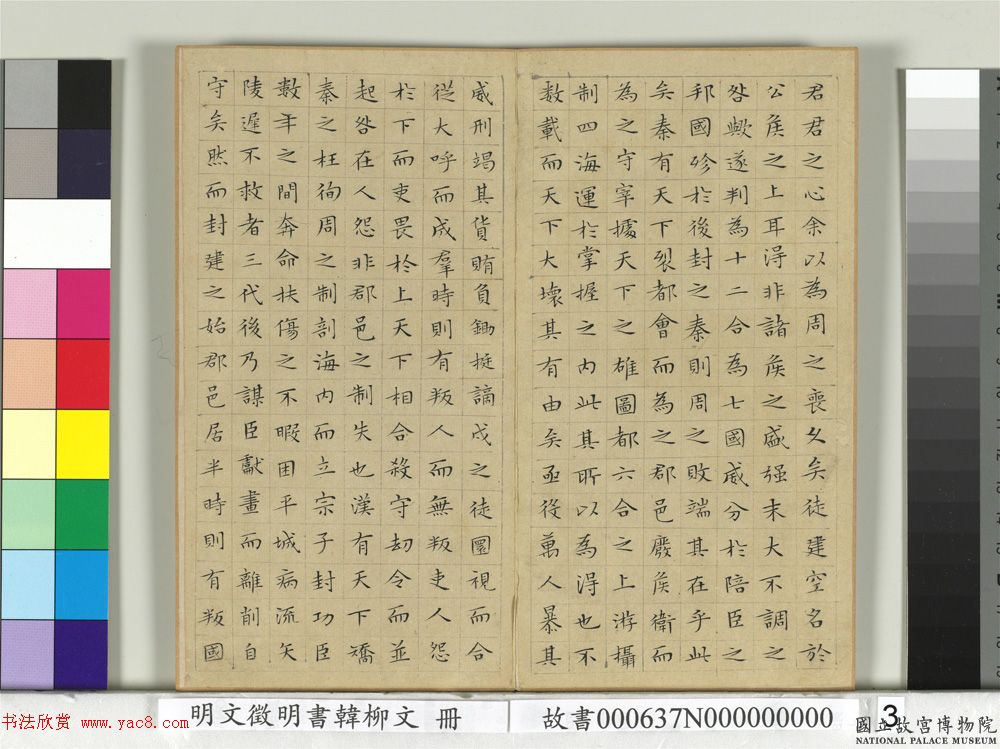 君君之心余以為周之喪久矣徒建空名於
公侯之上耳得非諸侯之盛強末大不調之
咎歟遂判為十二合為七國威分於陪臣之
邦國殄於後封之秦則周之敗端其在乎此
矣秦有天下裂都會而為之郡邑廢侯衛而
為之守宰據天下之雄圖都六合之上游攝
制四海運於掌握之內此其所以為得也不
數載而天下大壞其有由矣亟役萬人暴其
威刑竭其貨賄負鋤挺謫戍之徒圜視而合
從大呼而成羣時則有叛人而無叛吏人怨
於下而吏畏於上天下相合殺守劫令而並
起咎在人怨非郡邑之制失也漢有天下矯
秦之枉徇周之制剖海內而立宗子封功臣
數年之間奔命扶傷之不暇困平城病流矢
陵遲不救者三代後乃謀臣獻畫而離削自
守矣然而封建之始郡邑居半時則有叛國
明文徵明書韓柳文 冊
故書000637N000000000
3
书法欣赏 www.yac8.com
國立故宮博物院
NATIONAL PALACE MUSEUM